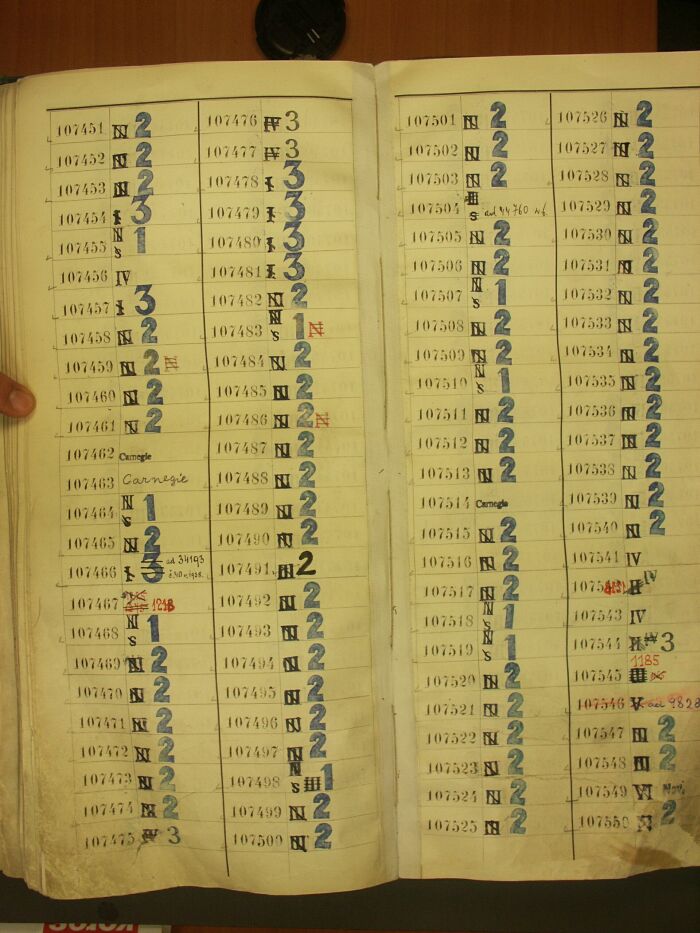 107451 N 2
107452 N 2
107453 N 2
107454 I 3
107455 N S 1
107456 IV
107457 I 3
107458 N 2
107459 N 2
107460 N 2
107461 N 2
107462 Carnegie
107463 Carnegie
107464 N S 1
107465 N 2
107466 I 3 ad 34193
107467 1218
107468 N S 1
107469 N 2
107470 N 2
107471 N 2
107472 N 2
107473 N 2
107474 N 2
107475 IV 3
107476 IV 3
107477 IV 3
107478 I 3
107479 I 3
107480 I 3
107481 I 3
107482 N 2
107483 N S 1
107484 N 2
107485 N 2
107486 N 2
107487 N 2
107488 N 2
107489 N 2
107490 N 2
107491 N 2
107492 N 2
107493 N 2
107494 N 2
107495 N 2
107496 N 2
107497 N 2
107498 N S III 1
107499 N 2
107500 N 2
107501 N 2
107502 N 2
107503 N 2
107504 III S ad 44760
107505 N 2
107506 N 2
107507 N S 1
107508 N 2
107509 N 2
107510 N S 1
107511 N 2
107512 N 2
107513 N 2
107514 Carnegie
107515 N 2
107516 N 2
107517 N 2
107518 N S 1
107519 N S 1
107520 N 2
107521 N 2
107522 N 2
107523 N 2
107524 N 2
107525 N 2
107526 N 2
107527 N 2
107528 N 2
107529 N 2
107530 N 2
107531 N 2
107532 N 2
107533 N 2
107534 N 2
107535 N 2
107536 N 2
107537 N 2
107538 N 2
107539 N 2
107540 N 2
107541 IV
II IV
107543 IV
107544 II IV 3
1185
107545 III
107546 V ad 9828
107547 N 2
107548 N 2
107549 VI Novi
107550 N 2